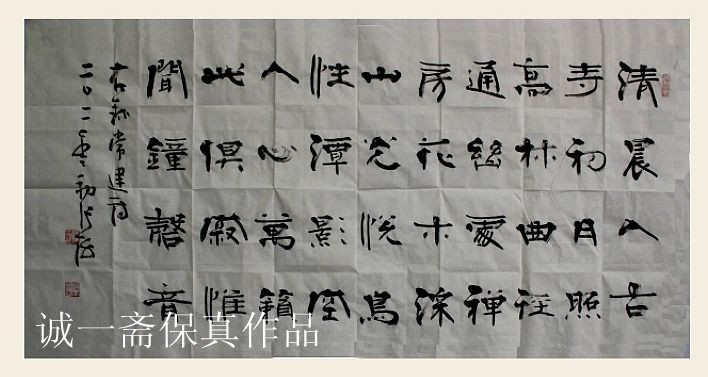 清晨入古
寺初日照
高林曲径
通幽處禪
房花木深
山光悅鳥
性潭影空
人心萬籟
此俱寂惟
聞鐘磬音
右錄常建詩
二〇一
诚一斋保真作品